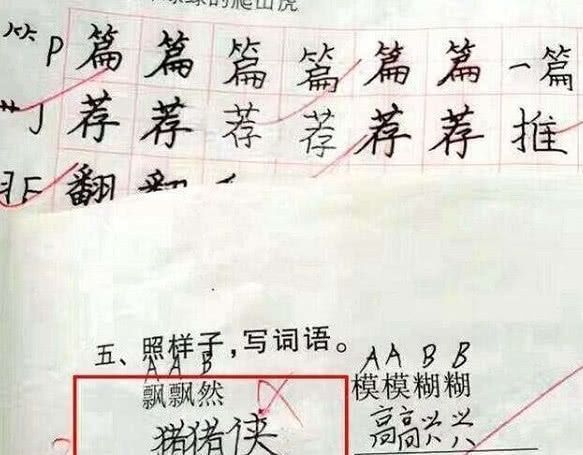 的爬山虎
⺮P 篇 篇 篇 篇 篇 篇 一篇
艹J 荐 荐 荐 荐 荐 荐 推
羽F 翻 翻
五、照样子,写词语。
A A B A A B B
飘飘然 模模糊糊
猪猪侠 高高兴兴